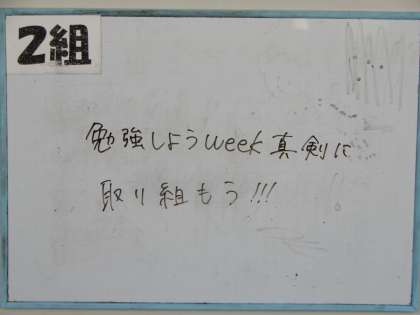 2組
勉強しようweek真剣に
取り組もう!!!